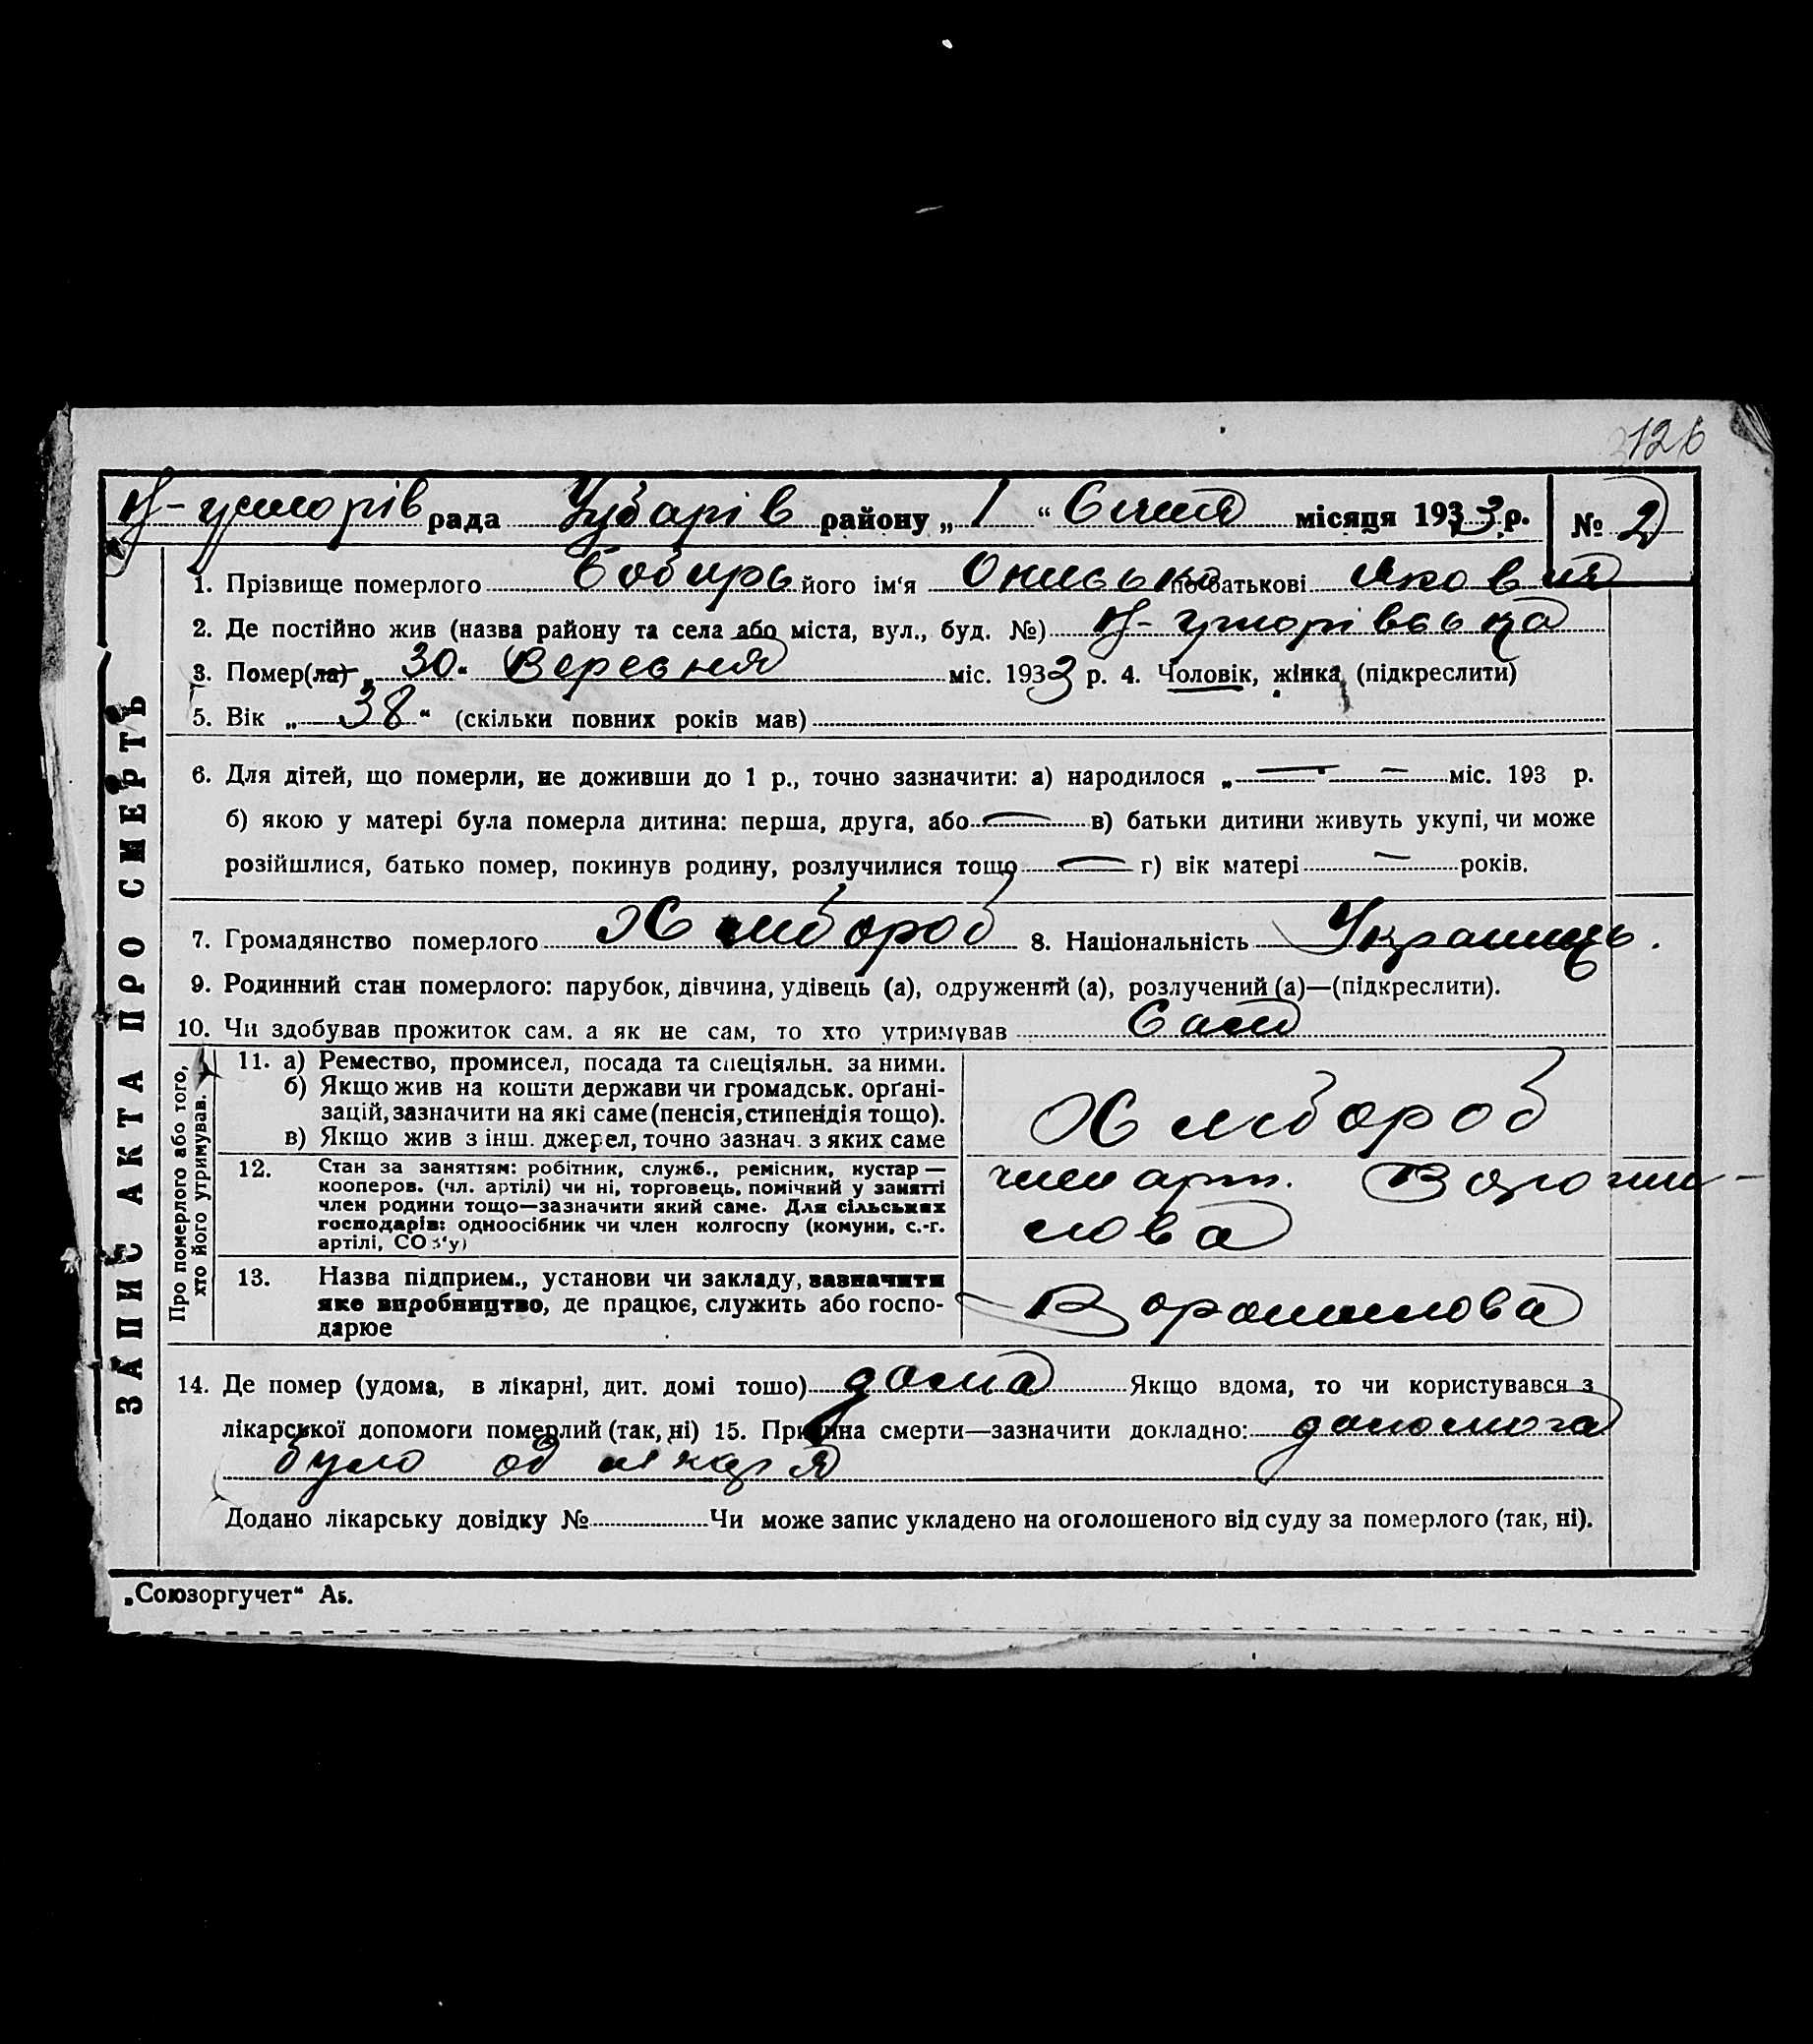 126
рада Чубарів району „ 1 “ Січня місяця 1933 р. № 2
ЗАПИС АКТА ПРО СМЕРТЬ
1. Прізвище померлого його ім‘я Онисько по батькові Яковля
2. Де постійно жив (назва району та села або міста, вул., буд. №)
3. Помер(ла) „ 30 “ Вересня міс. 1933 р. 4. Чоловік, жінка (підкреслити)
5. Вік „ 38 “ (скільки повних років мав)
6. Для дітей, що померли, не доживши до 1 р., точно зазначити: а) народилося „ — “ — міс. 193 р.
б) якою у матері була померла дитина: перша, друга, або — в) батьки дитини живуть укупі, чи може
розійшлися, батько помер, покинув родину, розлучилися тощо — г) вік матері — років.
7. Громадянство померлого Хлібороб 8. Національність Українець.
9. Родинний стан померлого: парубок, дівчина, удівець (а), одружений (а), розлучений (а)—(підкреслити).
10. Чи здобував прожиток сам. а як не сам, то хто утримував Сам
Про померлого або того, хто його утримував.
11. а) Ремество, промисел, посада та спеціяльн. за ними.
б) Якщо жив на кошти держави чи громадськ. органі-
зацій, зазначити на які саме (пенсія, стипендія тощо).
в) Якщо жив з інш. джерел, точно зазнач. з яких саме
Хлібороб
12. Стан за заняттям: робітник, служб., ремісник, кустар —
кооперов. (чл. артілі) чи ні, торговець, помічний у занятті
член родини тощо—зазначити який саме. Для сільських
господарів: одноосібник чи член колгоспу (комуни, с.-г.
артілі, СОЗ‘у)
член арт. Вороши-
лова
13. Назва підприєм., установи чи закладу, зазначити
яке виробництво, де працює, служить або госпо-
дарює
Ворошилова
14. Де помер (удома, в лікарні, дит. домі тощо) дома Якщо вдома, то чи користувався з
лікарської допомоги померлий (так, ні) 15. Причина смерти—зазначити докладно: допомога
було од лікаря
Додано лікарську довідку № Чи може запис укладено на оголошеного від суду за померлого (так, ні).
„Союзоргучет“ Аs.